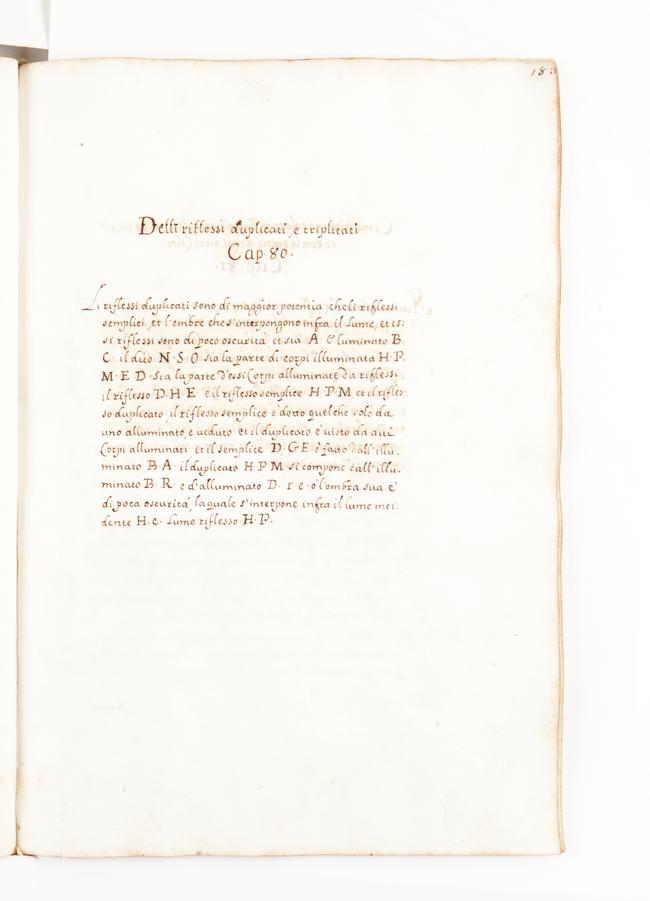 18
Delli riflessi duplicati, e triplicati
Cap. 80.
Li riflessi duplicati sono di maggior potentia, che li riflessi
semplici, et l'ombre che s'interpongono infra il lume, et es:
si riflessi sono di poco oscurità et sia A & luminato B.
C. il dito N. S. O sia la parte di corpi illuminata H. P.
M. E D. Sia la parte d'essi Corpi alluminate da riflessi
il riflesso D. H. E è il riflesso semplice H P. M et il rifles:
so duplicato, il riflesso semplice è detto quel che solo da
uno alluminato, è veduto et il duplicato è visto da due
Corpi alluminati et il semplice D. G E. è fatto dall'illu:
minato B. A. il duplicato H P M si compone dall'illu:
minato B. R. e d'alluminato D. r. e. o' l'ombra sua e'
di poca oscurità, la quale s'interpone infra il lume inci:
dente H. e. lume riflesso H. P.